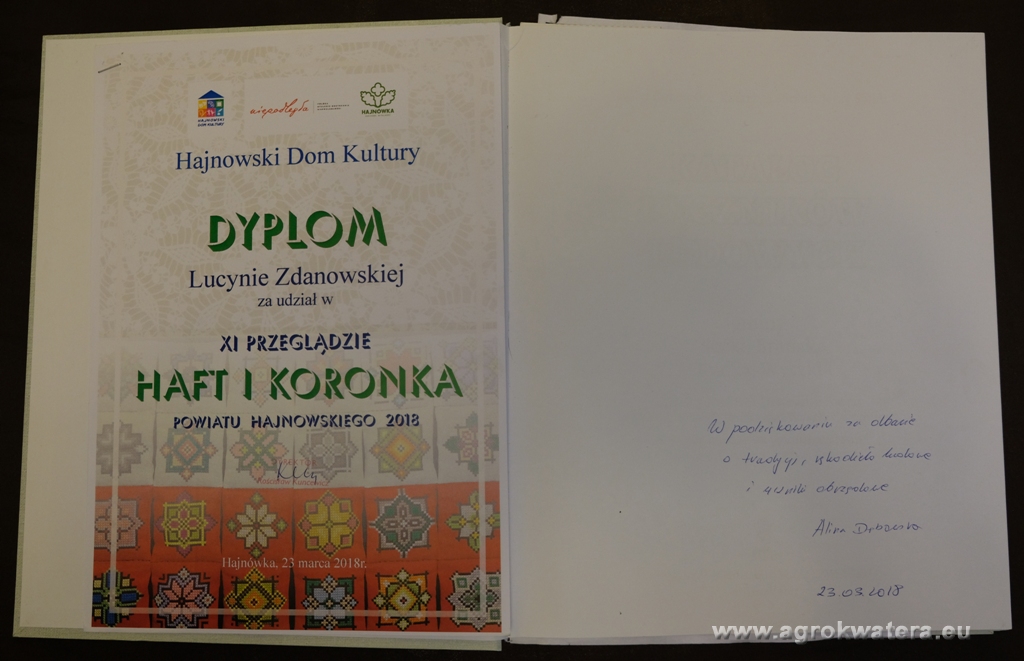 HAJNOWSKI
DOM KULTURY
niepodległa
HAJNÓWKA
Hajnowski Dom Kultury
DYPLOM
Lucynie Zdanowskiej
za udział w
XI PRZEGLĄDZIE
HAFT I KORONKA
POWIATU HAJNOWSKIEGO 2018
Hajnówka, 23 marca 2018r.
W podziękowaniu za dbanie
o tradycję, rękodzieło ludowe
i obrzędowe
Alina
23.03.2018
www.agrokwatera.eu